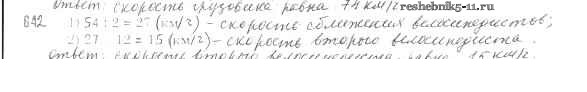 ответ: скорость грузовика равна 74 км/ч. reshebnik5-11.ru
642 1) 54 : 2 = 27 (км/ч) – скорость сближения велосипедистов;
2) 27 – 12 = 15 (км/ч) – скорость второго велосипедиста.
ответ: скорость второго велосипедиста равна 15 км/ч.